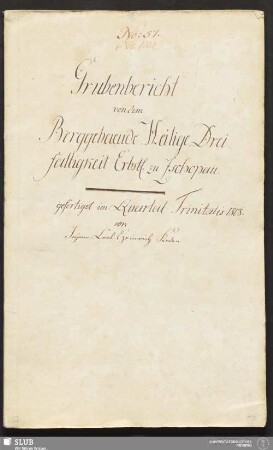 No: 51.
Grubenbericht
von dem
Berggebaeude Heilige Drei
faltigkeit Erbst. zu Zschopau
gefertiget im Quartal Trinitatis 1808.
von
Johann Carl
SLUB
Wir führen Wissen.